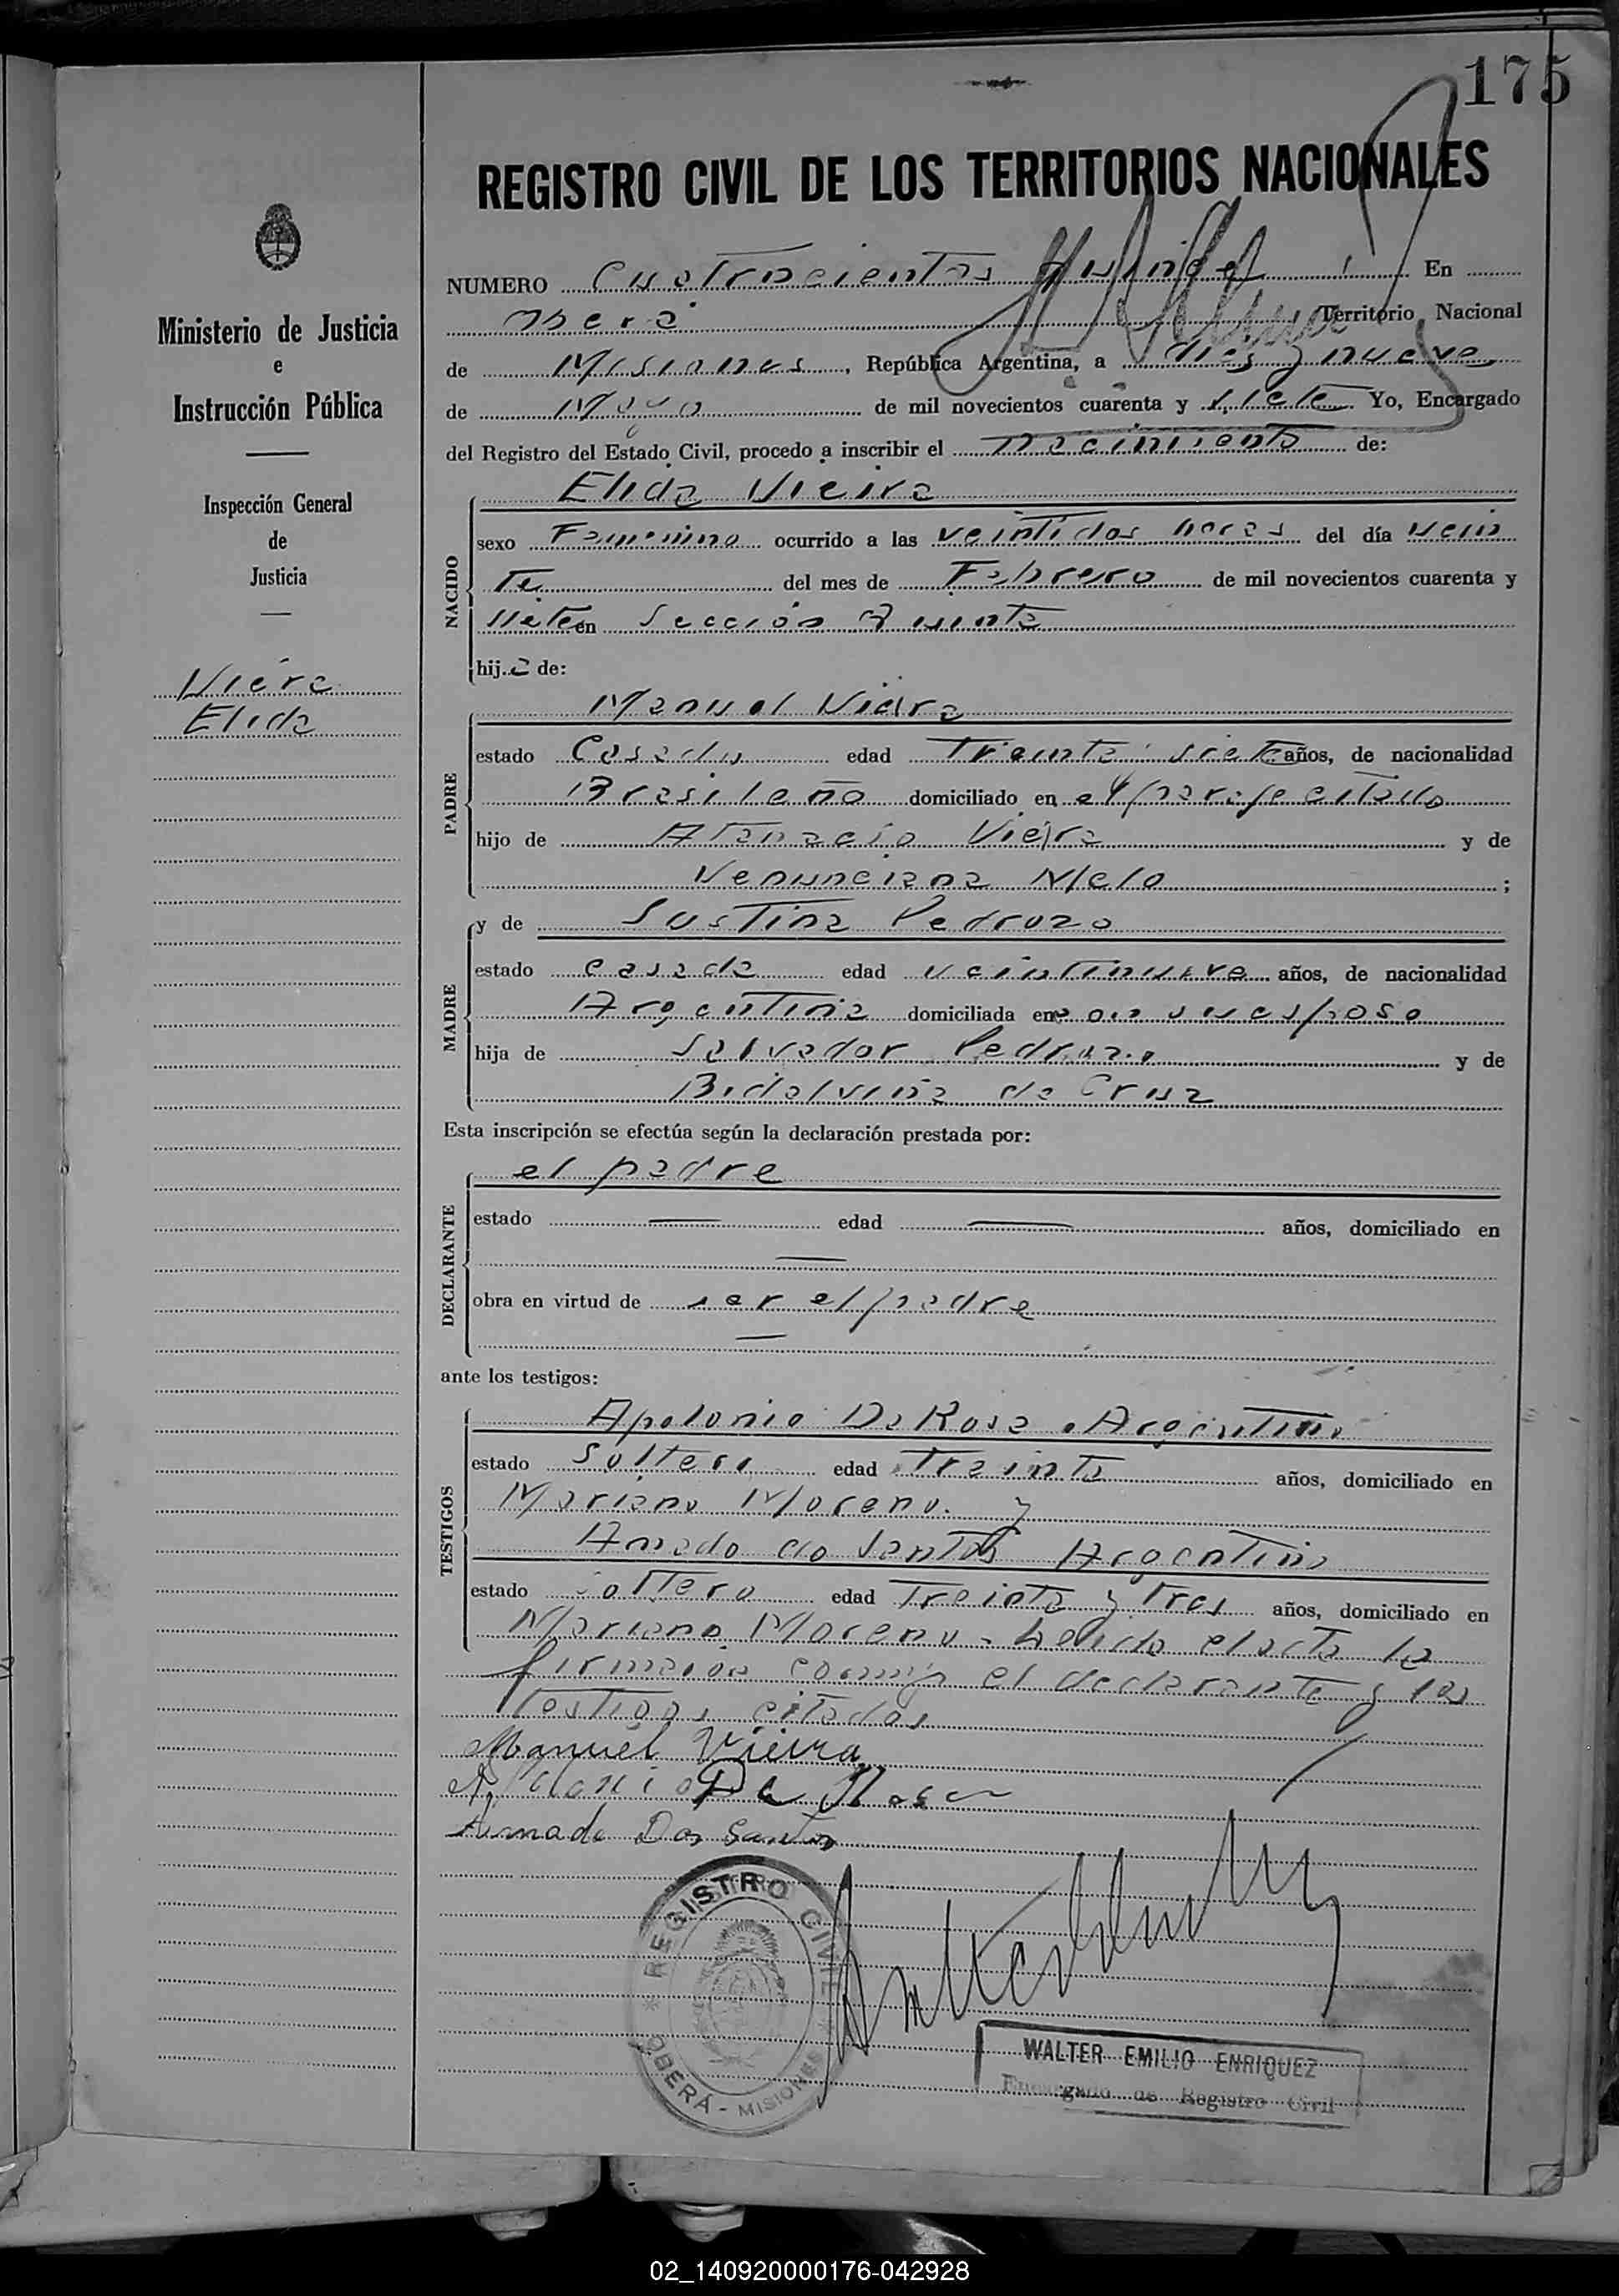 175
REGISTRO CIVIL DE LOS TERRITORIOS NACIONALES
Ministerio de Justicia
e
Instrucción Pública
Inspección General
de
Justicia
Viera
Elida
NUMERO Cuatrocientos quince En
Oberá Territorio Nacional
de Misiones, República Argentina, a diez y nueve
de Mayo de mil novecientos cuarenta y siete Yo, Encargado
del Registro del Estado Civil, procedo a inscribir el nacimiento de:
NACIDO
Elida Vieira
sexo Femenino ocurrido a las veintidos horas del día vein
te del mes de Febrero de mil novecientos cuarenta y
siete en Sección Quinta
hija de:
PADRE
Manuel Vieira
estado Casado edad treinta siete años, de nacionalidad
Brasileño domiciliado en el paraje citado
hijo de Atanacio Vieira y de
Venunciana Melo ;
MADRE
y de Justina Pedrozo
estado casada edad veintinueve años, de nacionalidad
Argentina domiciliada en con su esposo
hija de Salvador Pedrozo y de
Bidalvina da Cruz
Esta inscripción se efectúa según la declaración prestada por:
DECLARANTE
el padre
estado — edad — años, domiciliado en
—
obra en virtud de ser el padre
—
ante los testigos:
TESTIGOS
Apolonio Da Rosa Argentino
estado Soltero edad treinta años, domiciliado en
Mariano Moreno y
Amado do Santos Argentino
estado soltero edad treinta y tres años, domiciliado en
Mariano Moreno - Leida el acta la
firmaron conmigo el declarante y los
testigos citados
Manuel Vieira
Apolonio Da Rosa
Amado Dos Santos
REGISTRO CIVIL
OBERÁ - MISIONES
WALTER EMILIO ENRIQUEZ
Encargado de Registro Civil
02_140920000176-042928